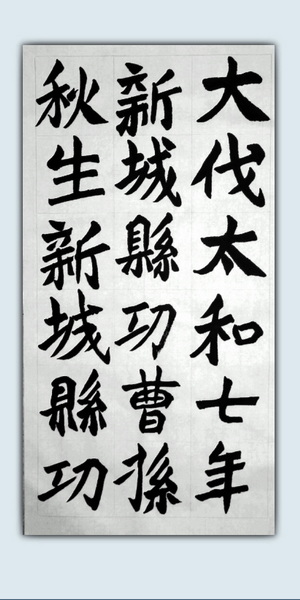 大伐太和七年
新城縣功曹孫
秋生新城縣功